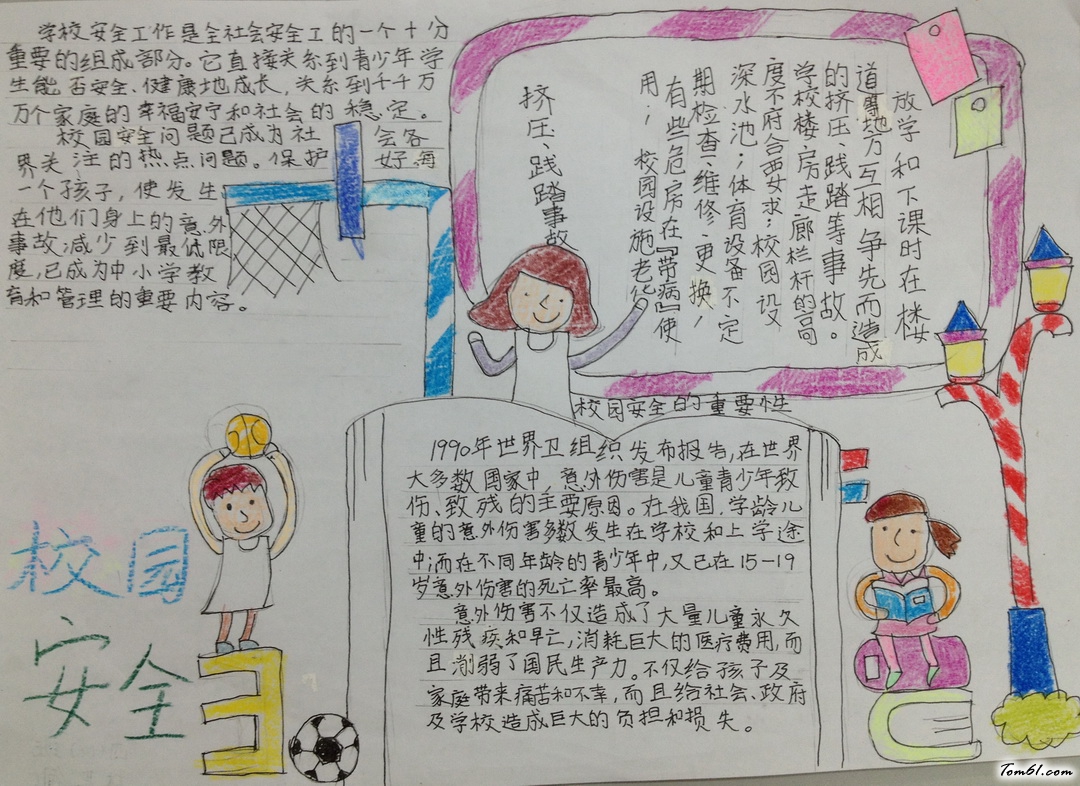 学校安全工作是全社会安全工的一个十分
重要的组成部分。它直接关系到青少年学
生能否安全、健康地成长,关系到千千万
万个家庭的幸福安宁和社会的稳定。
校园安全问题已成为社会各
界关注的热点问题。保护好每
一个孩子,使发生
在他们身上的意外
事故减少到最低限
度,已成为中小学教
育和管理的重要内容。
挤压、践踏事故
放学和下课时在楼
道等地方互相争先而造成
的挤压、践踏等事故。
学校楼房走廊栏杆的高
度不府合要求;校园设
深水池;体育设备不定
期检查、维修、更换,
有些危房在『带病』使
用;校园设施老化
校园安全的重要性
1990年世界卫组织发布报告,在世界
大多数国家中,意外伤害是儿童青少年致
伤、致残的主要原因。在我国,学龄儿
童的意外伤害多数发生在学校和上学途
中;而在不同年龄的青少年中,又已在15-19
岁意外伤害的死亡率最高。
意外伤害不仅造成了大量儿童永久
性残疾和早亡,消耗巨大的医疗费用,而
且削弱了国民生产力。不仅给孩子及
家庭带来痛苦和不幸,而且给社会、政府
及学校造成巨大的负担和损失。
校园
安全
Tom61.com